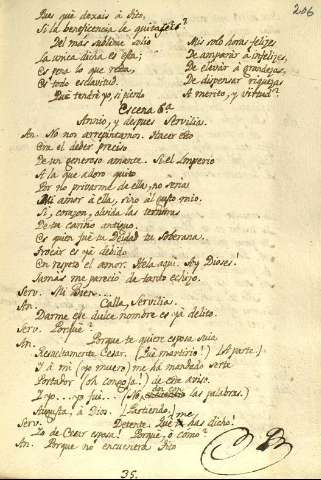 206
Pues qué dexais à Tito,
Si la beneficencia le quitasteis?
Del más sublime Solio
La unica dicha es esta;
Es pena lo que resta,
Es todo esclavitud.
Qué tendré yo, si pierdo
Mis solo horas felizes
De amparar à infelizes,
De elevar à grandezas,
De dispensar riquezas
A merito, y virtud?
Escena 6ª
Annio, y despues Servilia.
An. No nos arrepintamos. Hacer esto
Era el deber preciso
De un generoso amante. Si el Imperio
A la que adoro quito
Por no privarme de ella, no seria
Mi amor à ella, sino al gusto mio.
Si, corazon, olvida las ternuras
De tu cariño antiguo.
Es quien fué tu Deidad tu Soberana.
Trocar es yá debido
En respeto el amor. Hela aqui. Ay Dioses!
Jamás me pareció de tanto
Serv. Mi Bien....
An. Calla, Servilia.
Darme ese dulce nombre es yá delito.
Serv. Porqué?
An. Porque te quiere esposa suia
Resueltamente Cesar. (Qué martirio!) (Ap.te.)
Y à mi (yo muero) me há mandado serte
Portador (oh congoja!) de este aviso.
I yo...yo fui...(No, las palabras.)
Augusta, à Dios. (Partiendo.)
Serv. Detente. Qué me has dicho!
Yo de Cesar esposa! Porqué, ó cómo?
An. Porque no encuentra Tito
35.